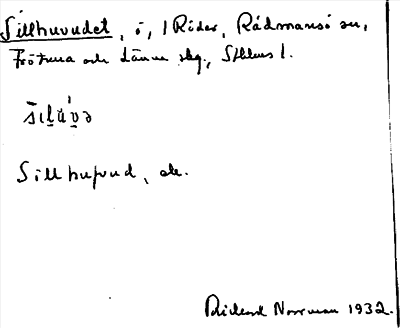 Sillhuvudet, ö, i Röder, Rådmansö sn,
Frötuna och Länna skg., Sthlms l.
Sillhufvud, ek.
Rickard Norrman 1932.